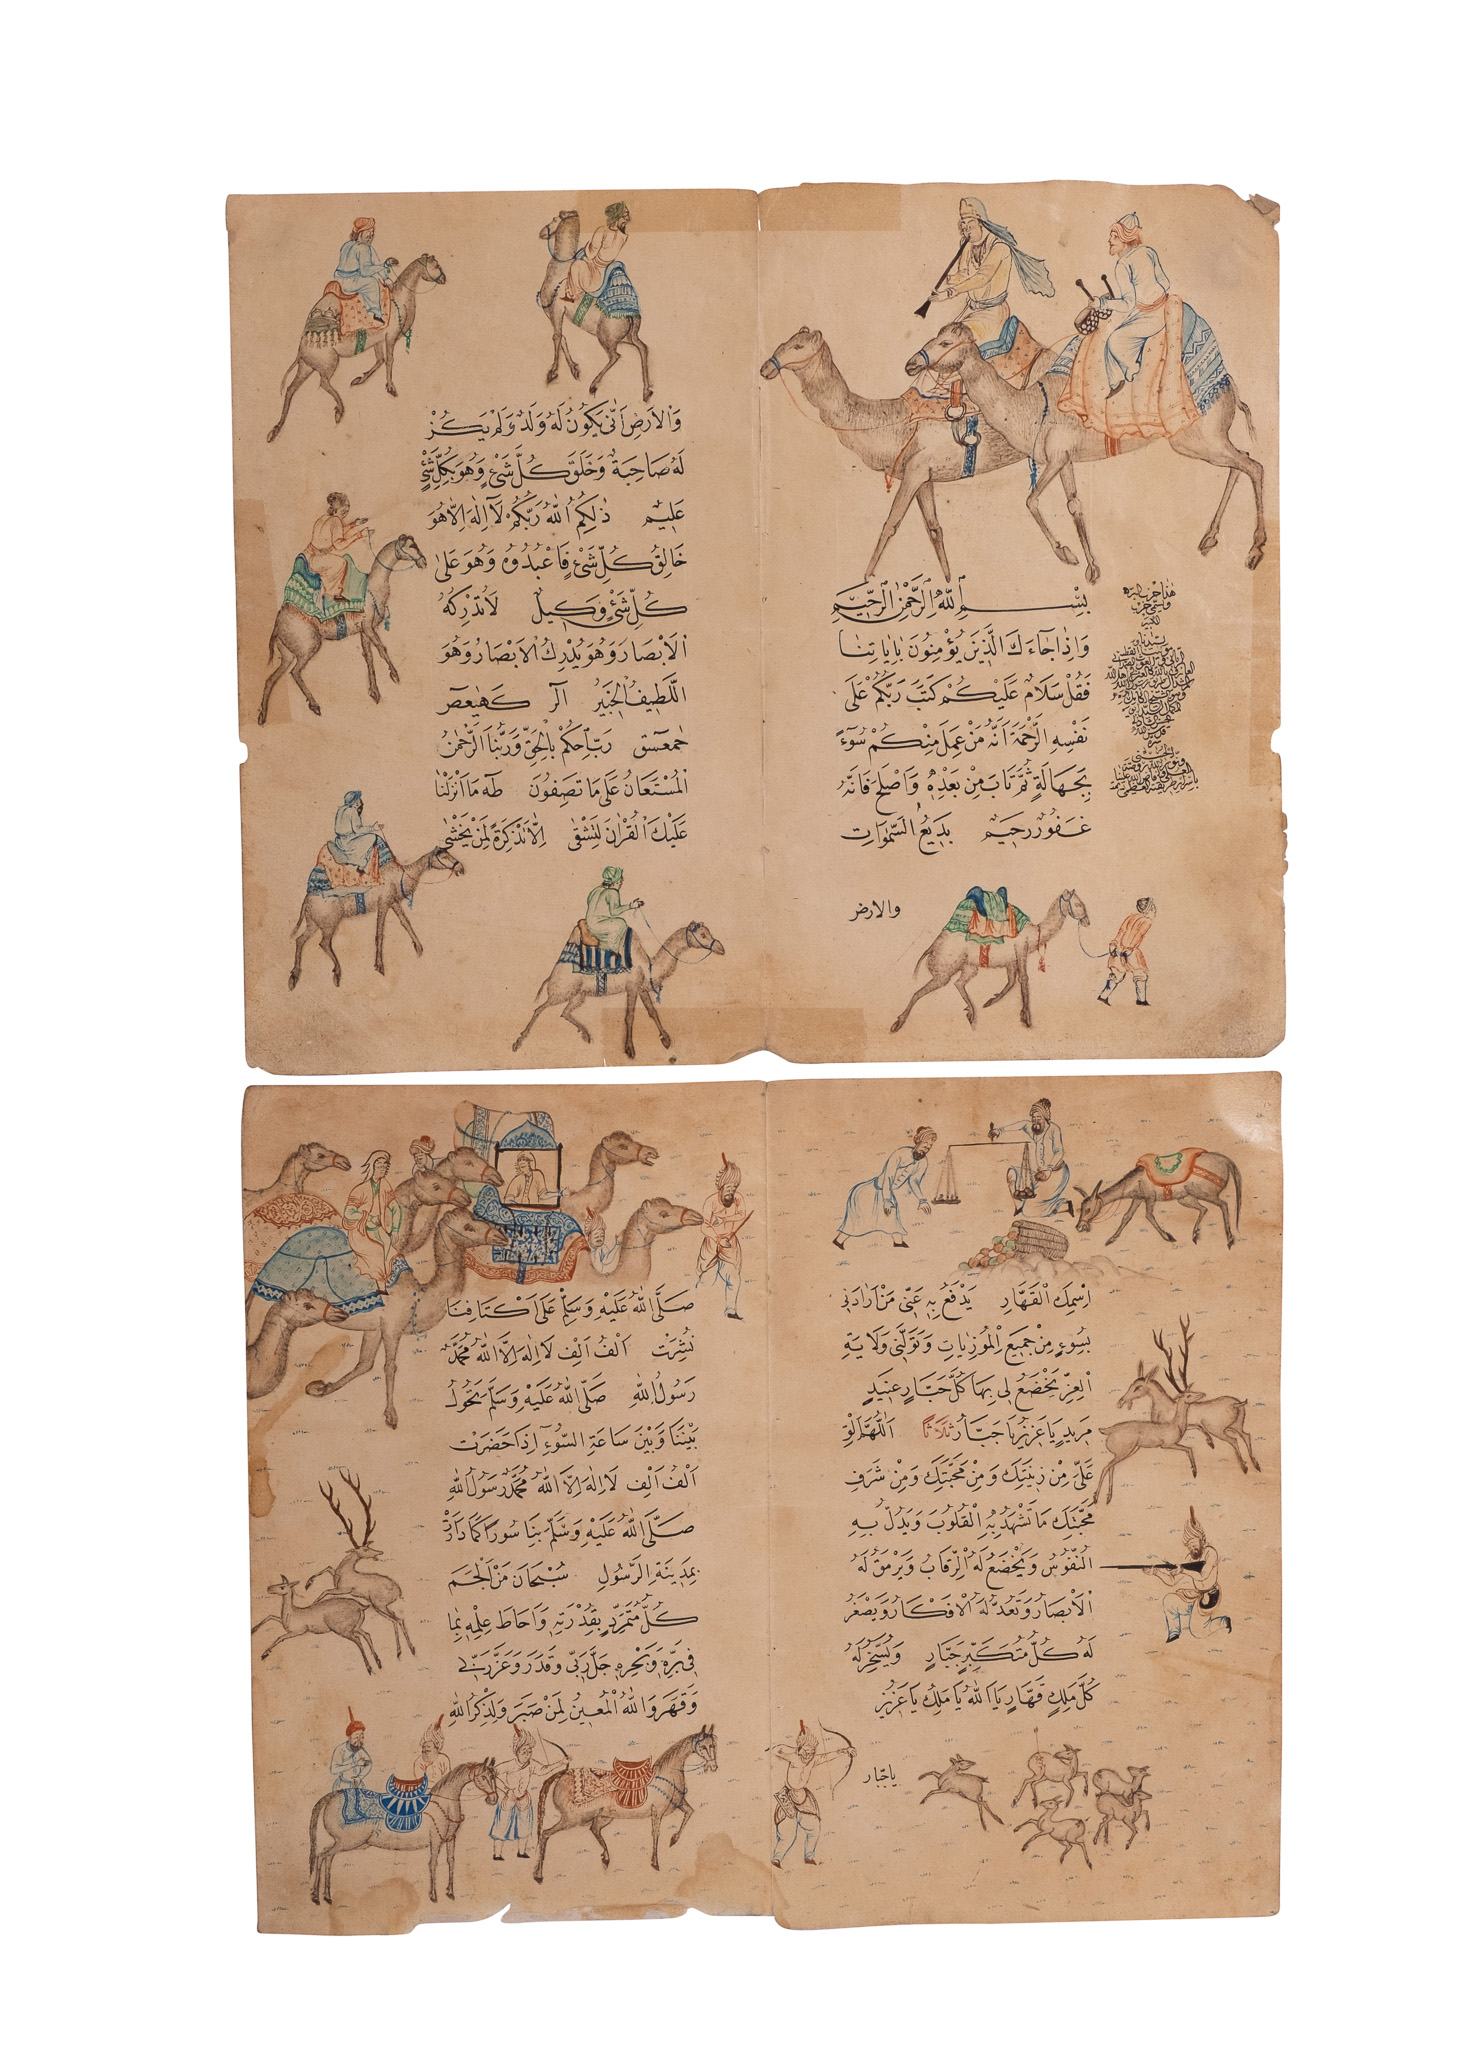 بِسْمِ اللّٰهِ الرَّحْمٰنِ الرَّحِيْمِ
وَاِذَا جَآءَكَ الَّذِيْنَ يُؤْمِنُوْنَ بِاٰيَاتِنَا
فَقُلْ سَلَامٌ عَلَيْكُمْ كَتَبَ رَبُّكُمْ عَلٰى
نَفْسِهِ الرَّحْمَةَ اَنَّهُ مَنْ عَمِلَ مِنْكُمْ سُوٓءًا
بِجَهَالَةٍ ثُمَّ تَابَ مِنْ بَعْدِهِ وَاَصْلَحَ فَاَنَّهُ
غَفُوْرٌ رَحِيْمٌ بَدِيْعُ السَّمٰوَاتِ
والارض
هٰذا حزب البر
وَالْاَرْضِ اَنّٰى يَكُوْنُ لَهُ وَلَدٌ وَلَمْ يَكُنْ
لَهُ صَاحِبَةٌ وَخَلَقَ كُلَّ شَىْءٍ وَهُوَ بِكُلِّ شَىْءٍ
عَلِيْمٌ ذٰلِكُمُ اللّٰهُ رَبُّكُمْ لَآ اِلٰهَ اِلَّا هُوَ
خَالِقُ كُلِّ شَىْءٍ فَاعْبُدُوْهُ وَهُوَ عَلٰى
كُلِّ شَىْءٍ وَكِيْلٌ لَا تُدْرِكُهُ
الْاَبْصَارُ وَهُوَ يُدْرِكُ الْاَبْصَارَ وَهُوَ
اللَّطِيْفُ الْخَبِيْرُ الٓرٰ كٓهٰيٰعٓصٓ
حٰمٓعٓسٓقٓ رَبِّ احْكُمْ بِالْحَقِّ وَرَبُّنَا الرَّحْمٰنُ
الْمُسْتَعَانُ عَلٰى مَا تَصِفُوْنَ طٰهٰ مَا اَنْزَلْنَا
عَلَيْكَ الْقُرْاٰنَ لِتَشْقٰى اِلَّا تَذْكِرَةً لِمَنْ يَخْشٰى
اِسْمِكَ الْقَهَّارِ يَدْفَعُ بِهِ عَنّٖى مَنْ اَرَادَنٖى
بِسُوْءٍ مِنْ جَمِيْعِ الْمُوْذِيَاتِ وَتَوَلَّنٖى وَلَايَةِ
الْعِزِّ يَخْضَعُ لٖى بِهَا كُلُّ جَبَّارٍ عَنِيْدٍ
مَرِيْدٍ يَا عَزِيْزُ يَا جَبَّارُ ثَلَاثًا اَللّٰهُمَّ اَلْقِ
عَلَىَّ مِنْ زِيْنَتِكَ وَمِنْ مَحَبَّتِكَ وَمِنْ شَرَفِ
مَحَبَّتِكَ مَا تَشْهَدُ بِهِ الْقُلُوْبُ وَيَذِلُّ بِهِ
النُّفُوْسُ وَيَخْضَعُ لَهُ الرِّقَابُ وَيَرْمُقُ لَهُ
الْاَبْصَارُ وَتَعُدُّ لَهُ الْاَفْكَارُ وَيَصْغَرُ
لَهُ كُلُّ مُتَكَبِّرٍ جَبَّارٍ وَيُسَخِّرُ لَهُ
كُلَّ مَلِكٍ قَهَّارٍ يَا اَللّٰهُ يَا مَلِكُ يَا عَزِيْزُ
يا جبار
صَلَّى اللّٰهُ عَلَيْهِ وَسَلَّمَ عَلٰى اَكْتَافِنَا
نُشِرَتْ اَلْفُ اَلْفِ لَا اِلٰهَ اِلَّا اللّٰهُ مُحَمَّدٌ
رَسُوْلُ اللّٰهِ صَلَّى اللّٰهُ عَلَيْهِ وَسَلَّمَ تَحُوْلُ
بَيْنَنَا وَبَيْنَ سَاعَةِ السُّوْٓءِ اِذَا حَضَرَتْ
اَلْفُ اَلْفِ لَا اِلٰهَ اِلَّا اللّٰهُ مُحَمَّدٌ رَسُوْلُ اللّٰهِ
صَلَّى اللّٰهُ عَلَيْهِ وَسَلَّمَ بِنَا سُوْرًا كَمَا دَارَتْ
بِمَدِيْنَةِ الرَّسُوْلِ سُبْحَانَ مَنْ اَلْجَمَ
كُلَّ مُتَمَرِّدٍ بِقُدْرَتِهِ وَاَحَاطَ عِلْمُهُ بِمَا
فٖى بَرِّهِ وَبَحْرِهِ جَلَّ رَبّٖى وَقَدَرَ وَعَزَّ رَبّٖى
وَقَهَرَ وَاللّٰهُ الْمُعِيْنُ لِمَنْ صَبَرَ وَلَذِكْرُ اللّٰهِ